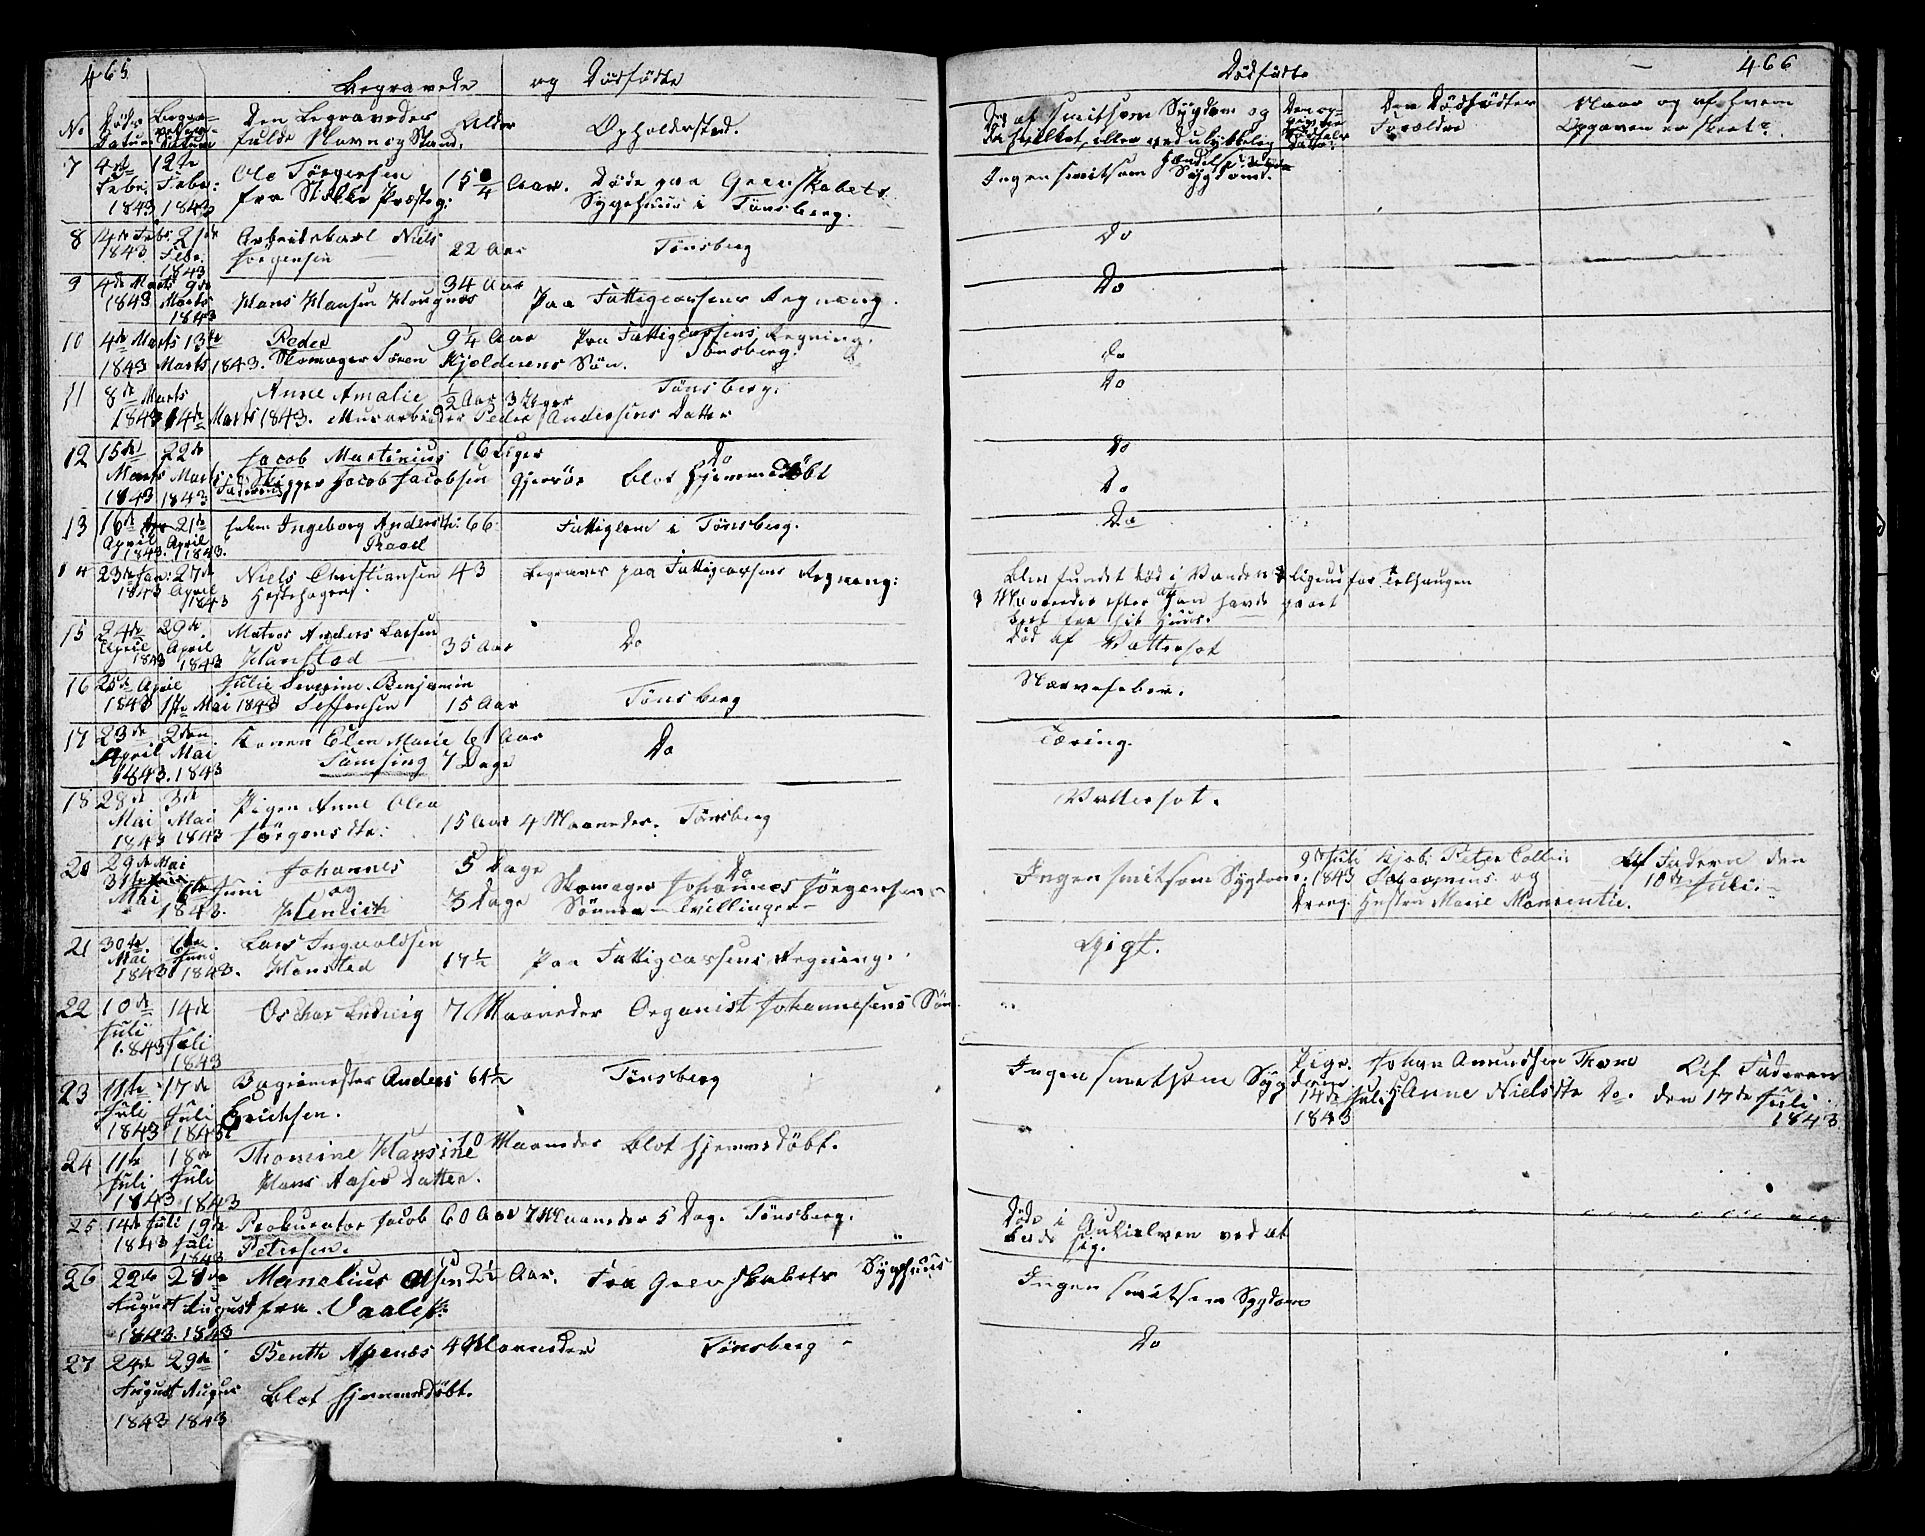 465
Begravede og Dödfödte
No Döds Datum Begravelses Datum Den Begravedes fulde Navn og Stand. Alder Opholdssted.
7 4de Febr. 1843 12te Febr: 1843 Ole Törgersen
fra Stokke Præsteg: 15 3/4 Aar. Døde paa Grevskabets
Sygehuus i Tönsberg.
8 14de Febr 1843 21de Febr. 1843 Arbeidskarl Niels
Jörgensen 22 Aar Tönsberg
9 4de Marts 1843 9de Marts 1843 Hans Hansen Hougnæs 34 Aar Paa Fattigcassens Regning.
10 4de Marts 1843 13de Marts 1843. Peder
Skomager Sören Kjolderens Sön. 9 1/4 Aar Paa Fattigcassens Regning.
Tönsberg.
11 8de Marts 1843 14de Marts 1843. Anne Amalie 1/2 Aar 3 Uger Tönsberg.
Muurarbeider Peder Andersens Datter
12 15de Marts 1843 22de Marts 1843 Jacob Martinius 16 Uger Do
Faderen Skipper Jacob Jacobsen Gjersöe blot hjemmedöbt
13 16de April 1843. 21de April 1843. Enken Ingeborg Andersdt: 66. Fattiglem i Tönsberg.
Raael
14 23de Jan: 1843 27de April 1843 Niels Christiansen
Hestehagen. 43 Begraves paa Fattigcassens Regning:
15 24de April 1843 29de April 1843 Matros Anders Larsen
Hanstad 35 Aar Do
16 25de April 1843 1ste Mai 1843 Julie Severine Benjamin
Seffensen 15 Aar Tönsberg
17 23de April 1843. 2den Mai 1843 Konen Elen Marie
Samsing 61 Aar
7 Dage Do
18 28de Mai 1843 3de Mai 1843 Pigen Anne Olea
Jörgensdtr: 15 Aar 4 Maaneder. Tönsberg
20 29de Mai 31te Mai 6te Juni 1843. Johannes
og
Henrich 5 Dage
3 Dage Do
Skomager Johannes Jörgensens
Sönner – Tvillinger –
21 30te Mai 1843 6te Juni 1843. Lars Ingvaldsen
Hansted 17 1/2 Paa Fattigcassens Regning.
22 10de Juli 1843 14de Juli 1843 Oschar Ludvig 7 Maaneder Organist Johannesens Sön
23 11te Juli 1843 17de Juli 1843 Bagermester Anders
Erichsen. 61 1/2 Tönsberg
24 11te Juli 1843 18de Juli 1843 Thomine Hansine
Hans Aases Datter. 10 Maaneder blot hjemmedöbt.
25 14de Juli 1843 19de Juli 1843 Prokurator Jacob
Petersen. 60 Aar 7 Maaneder 5 Dag. Tönsberg.
26 22de August 1843. 28de August 1843 Manelius Olsen
fra Vaale 21 Aar. Fra Grevskabets Sygehuus
27 24de August 1843 29de August 1843 Benth Apenæs
Blot hjemmedöbt. 4 Maaneder Tönsberg
Dödfödte 466
Död af smitsom Sygdom og
da hvilken, eller ved ulykkelig
Hændelse Den Dödfödtes
Forældre Naar og af hvem
Opgaven er skeet.
Ingen smitsom Sygdom.
Do
Do
Do
Do
Do
Do
Do
Blev fundet död i Vandet ligeud for Teglhaugen
3 Maaneder efter at han havde gaaet
bort fra sit Huus.
Död af Vattersot
Nervefeber.
Tæring.
Vattersot.
Ingen smitsom Sygdom. 9de Juli 1843
Dreng Peter
og
Hustru Marie Af Faderen den
10de Juli.
Gigt.
Ingen smitsom Sygdom Pige.
14de Juli
1843 Johan Amundsen
Anne Nielsdtr Do. Af Faderen
den 17de Juli
1843
Döde i ved at
bade sig.
Ingen smitsom Sygdom
Do